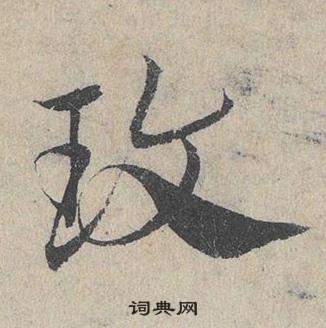 玫
词典网